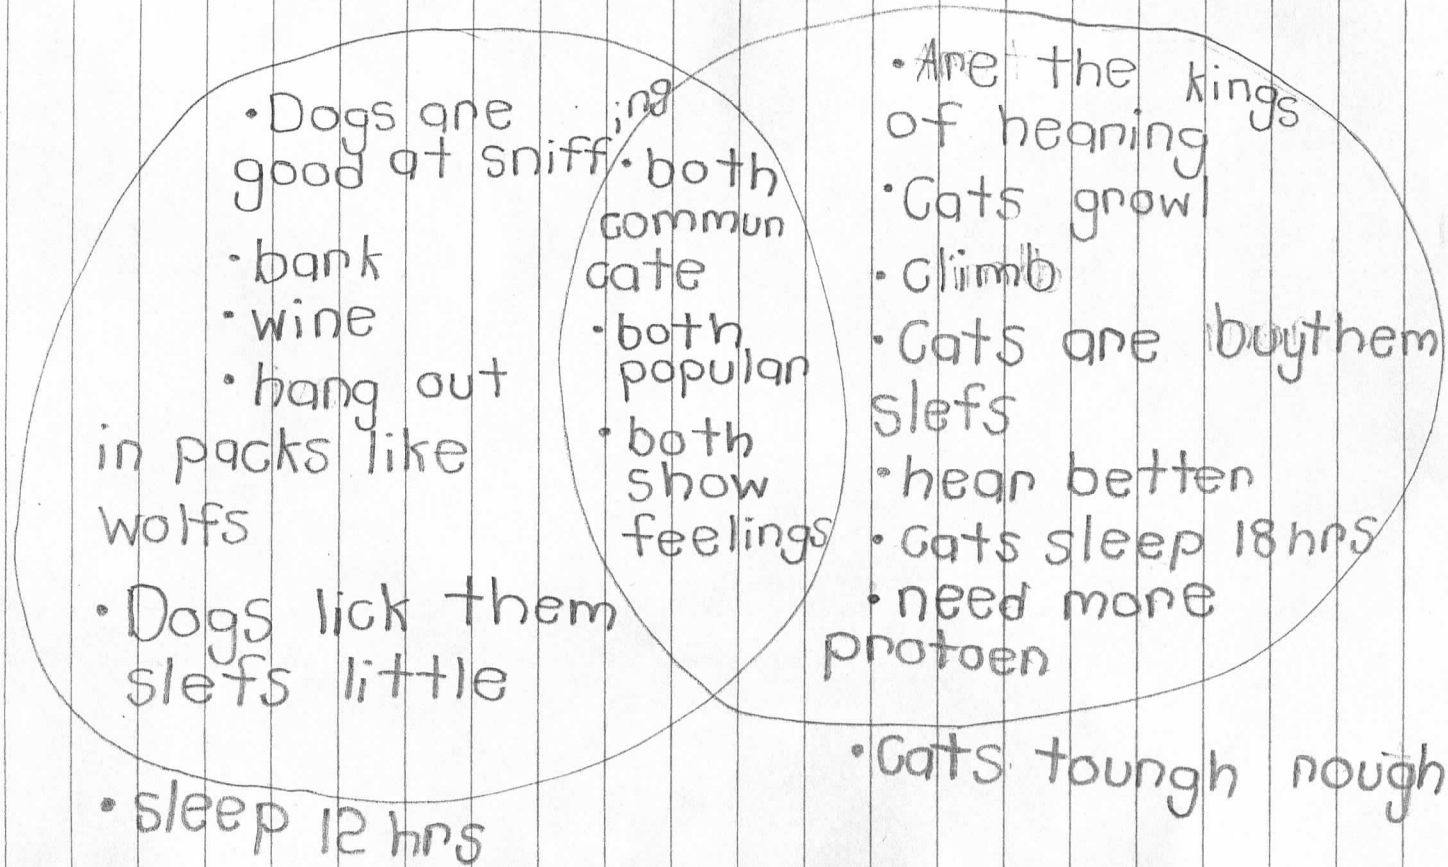 •Dogs are
good at sniffing
•bark
•wine
•hang out
in packs like
wolfs
•Dogs lick them
slefs little
•sleep 12 hrs
•both
commun
cate
•both
popular
•both
show
feelings
•Are the kings
of hearing
•Cats growl
•climb
•Cats are buythem
slefs
•hear better
•Cats sleep 18 hrs
•need more
protoen
•Cats toungh rough